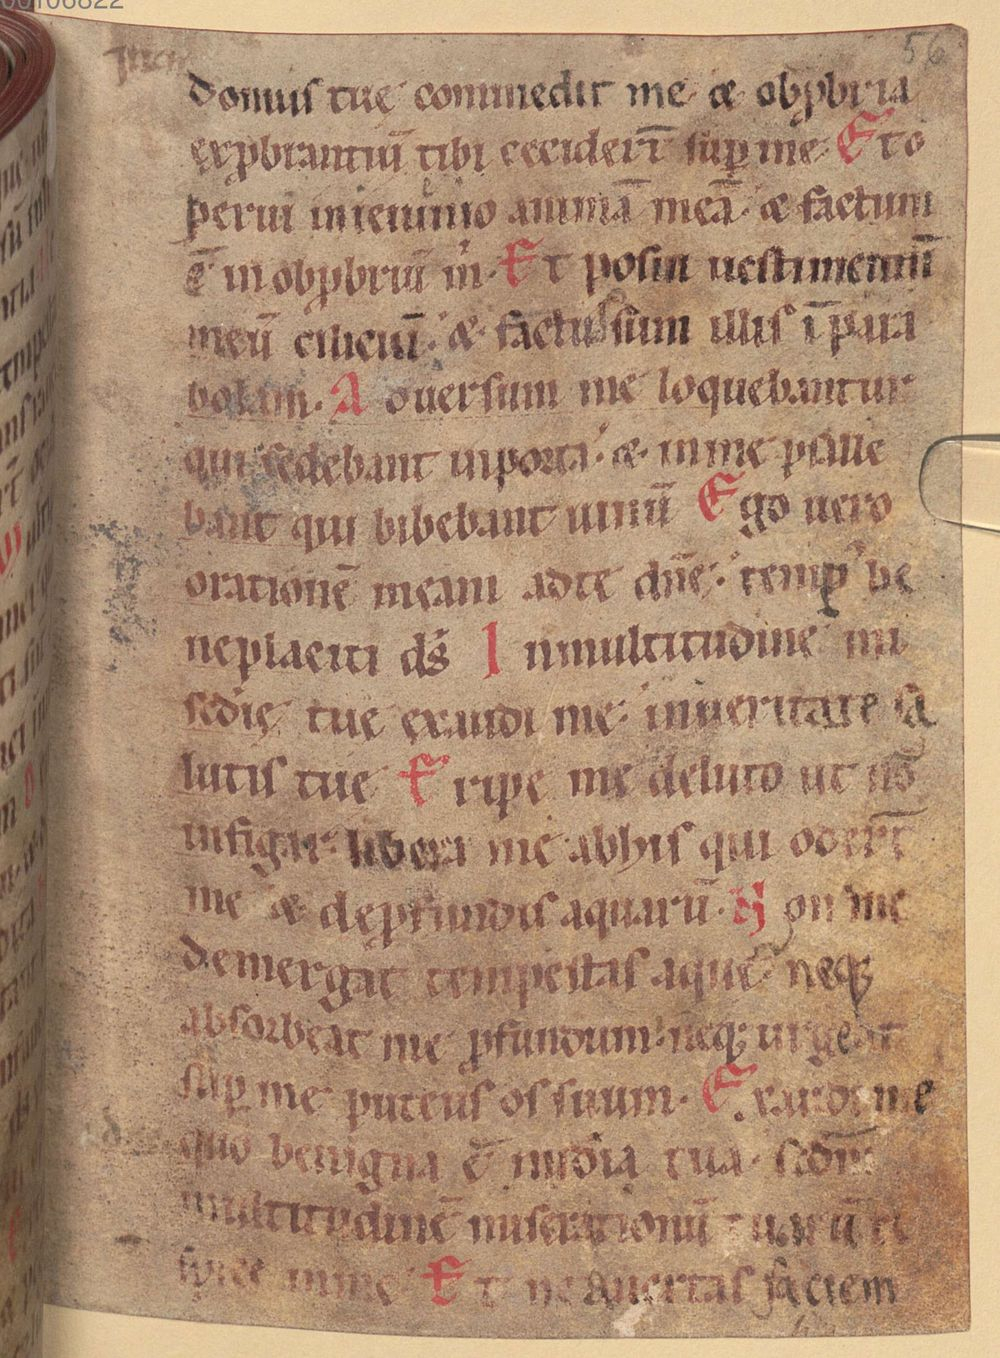 00106822
56
domus tue comedit me & obꝓbria
exꝓbrantiū tibi cecider̄t suꝑ me. Et o
perui in ieiunio animā meā. & factum
ē in obꝓbriū m̍. Et posui uestimentū
meū ciliciū. & factus sum illis ī para
bolam. Aduersum me loquebantur
qui sedebant in porta. & in me psalle
bant qui bibebant uinū Ego uero
orationē meam ad te dn̄e. temp᷒ be
neplaciti ds̄ In multitudine mi
sedię tue exaudi me. in ueritate sa
lutis tue Eripe me de luto ut nō
infigar. libera me ab his qui oder̄t
me & de ꝓfundis aquarū. Non me
demergat tempestas aque. neqꝫ
absorbeat me ꝓfundum. neqꝫ urgeat
suꝑ me puteus os suum. Exaudi me
quō benigna ē mīdia tua. scdm̄
multitudinē miserationū tuarū re
spice in me Et ne auertas faciem